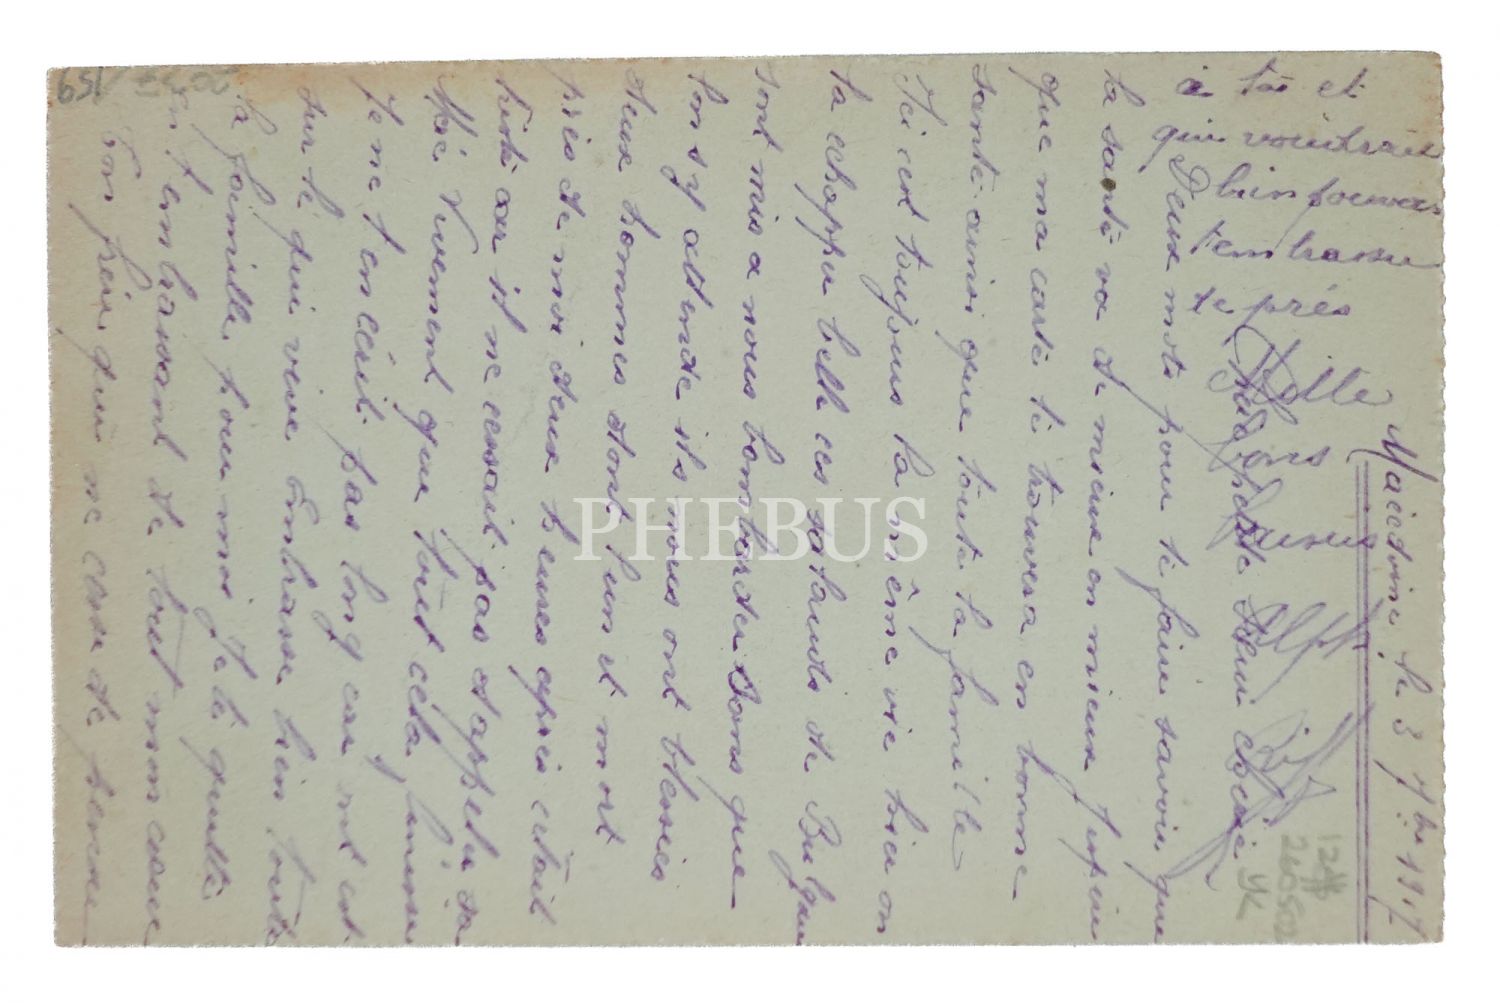 Macedoine, le 3 7bre 1917
Ma petite Sœur cherie
Deux mots pour te faire savoir que
la santé va de mieux en mieux J'espere
que ma carte te trouvera en bonne
santé ainsi que toute la famille
Ici est toujours la même vie hier on
la echapper belle ces salauds de Bulgare
sont mis a nous bombarder sans que
lon sy attende ils nous ont blesses
deux hommes dont lun et mort
près de moi deux heures après cétait
triste car il ne cessait pas dappeler sa
Mère Vivement que tout cela finisse
Je ne t'en cérit pas long car
sur te qui vive Embrasse bien toute
la famille pour moi Je te quitte
en t'embrassant de tout mon cœur
Ton frère qui ne cesse de penser
à toi et
qui voudrait
bien pouvoir
tembrasse
de près
Mille
bons
Alph
PHEBUS
159
12/18
260502